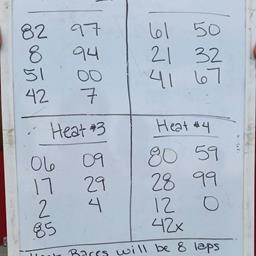 82 97
8 94
51 00
42 7
61 50
21 32
41 67
Heat #3
06 09
17 29
2 4
85
Heat #4
80 59
28 99
12 0
42x
Races will be 8 laps